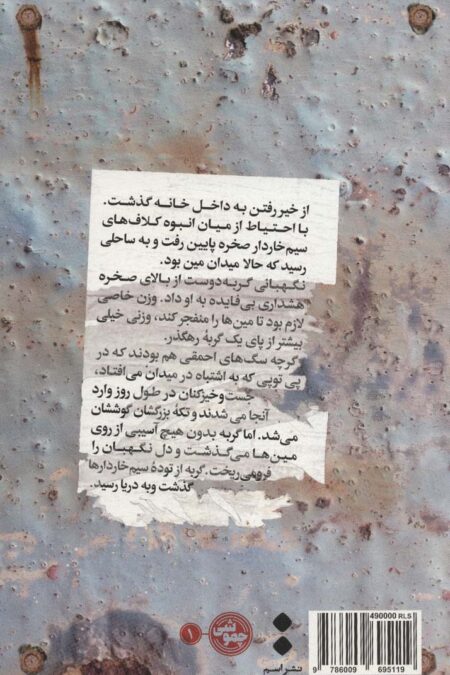 از خیر رفتن به داخل خانه گذشت.
با احتیاط از میان انبوه کلاف‌های
سیم‌خاردار صخره پایین رفت و به ساحلی
رسید که حالا میدان مین بود.
نگهبانی گربه‌دوست از بالای صخره
هشداری بی‌فایده به او داد. وزن خاصی
لازم بود تا مین‌ها را منفجر کند، وزنی خیلی
بیشتر از پای یک گربهٔ رهگذر.
گرچه سگ‌های احمقی هم بودند که در
پی توپی که به اشتباه در میدان می‌افتاد،
جست‌وخیزکنان در طول روز وارد
آنجا می‌شدند و تکهٔ بزرگشان گوششان
می‌شد. اما گربه بدون هیچ آسیبی از روی
مین‌ها می‌گذشت و دل نگهبان را
فرومی‌ریخت. گربه از تودهٔ سیم خاردارها
گذشت و به دریا رسید.
خموشی
۱
490000 RLS
9 786009 695119
نشر اسم